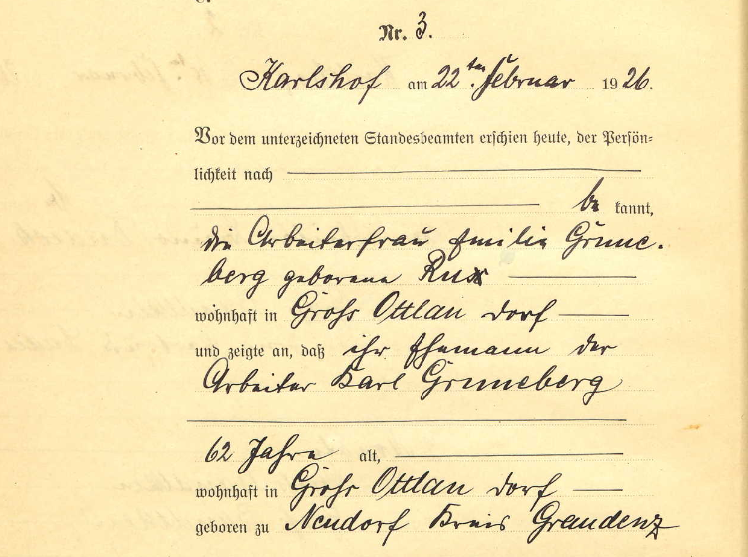 Nr. 3.
Karlshof am 22ten Februar 1926.
Vor dem unterzeichneten Standesbeamten erschien heute, der Persön-
lichkeit nach
be kannt,
die Arbeiterfrau Emilie Grune-
berg geborene Rux
wohnhaft in Groß Ottlau Dorf
und zeigte an, daß ihr Ehemann der
Arbeiter Karl Gruneberg
62 Jahre alt,
wohnhaft in Groß Ottlau Dorf
geboren zu Neudorf Kreis Graudenz